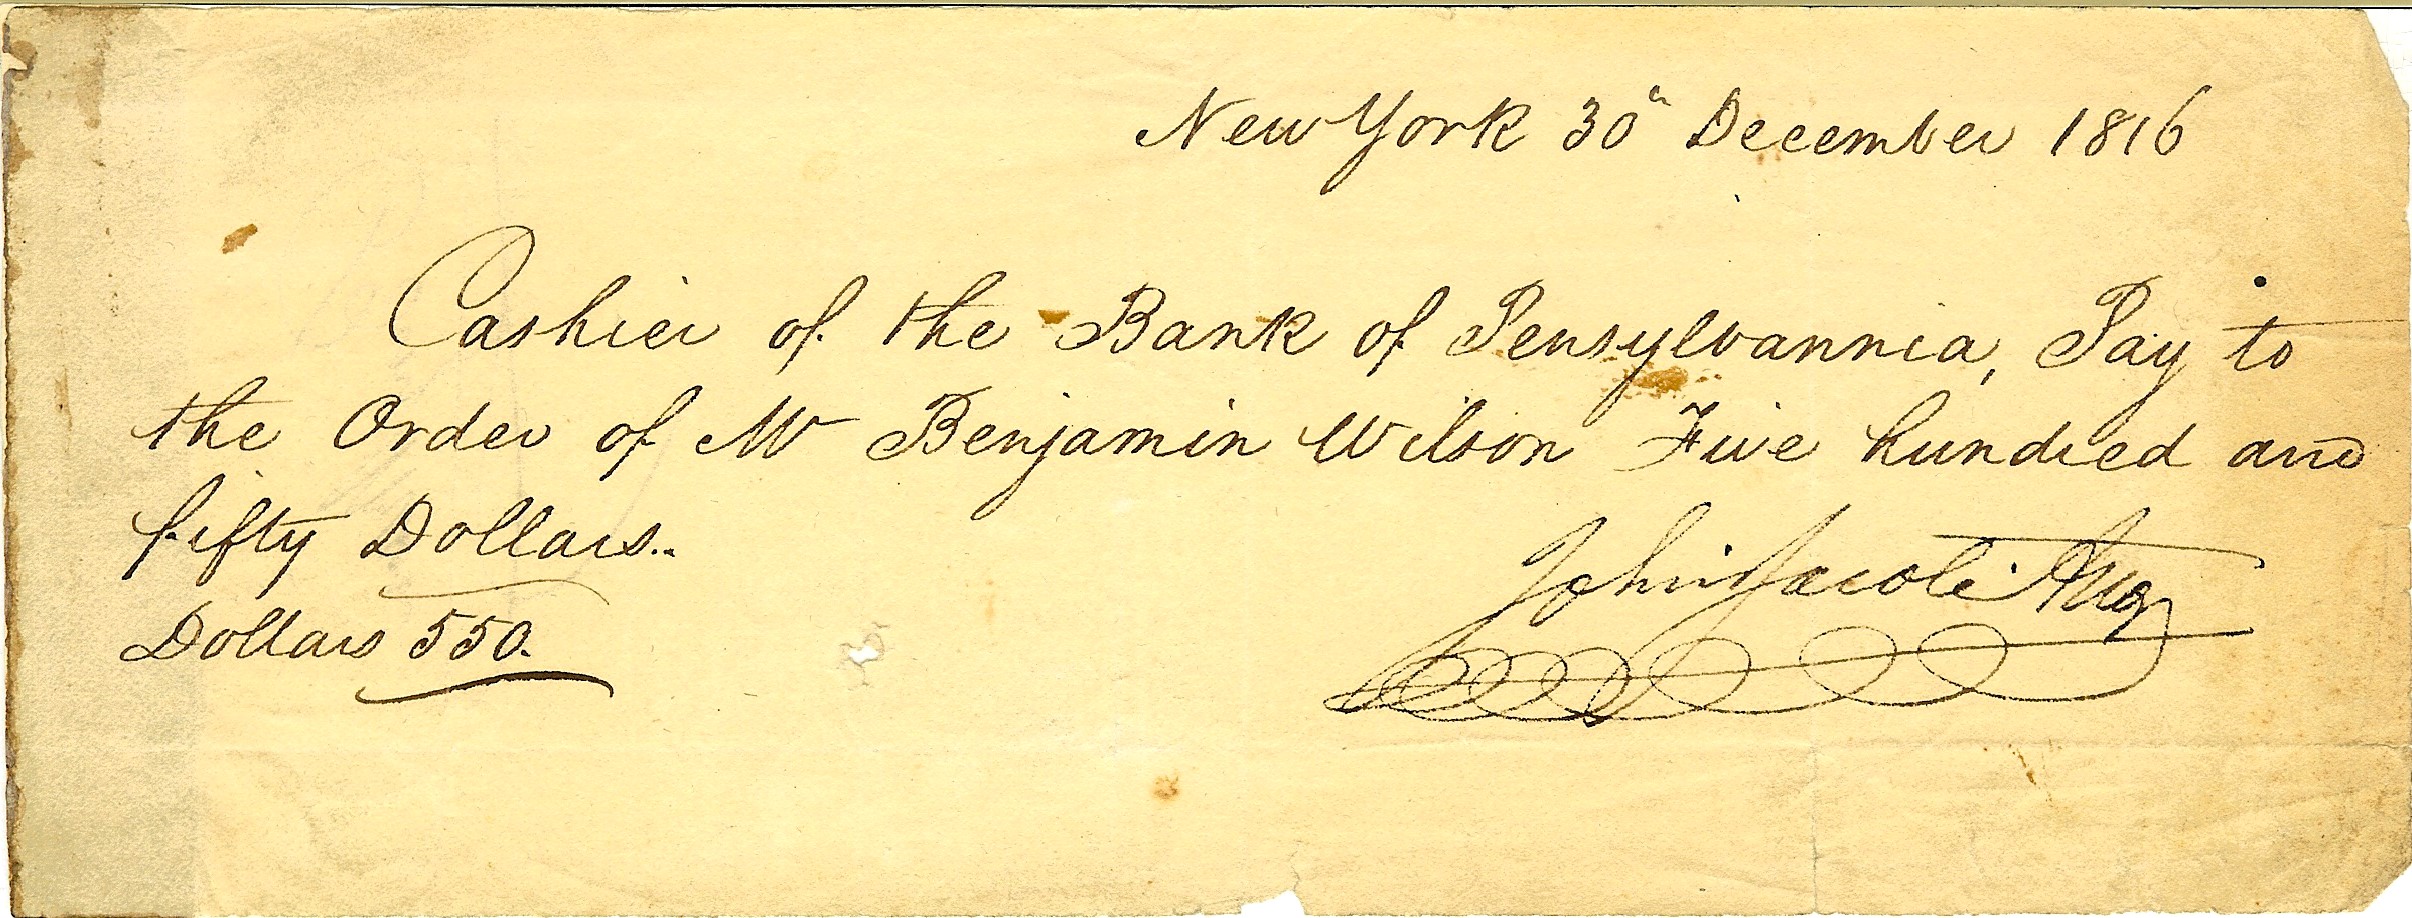 New York 30th December 1816
Cashier of the Bank of Pensylvannia, Pay to
the Order of Mr Benjamin Wilson Five hundred and
fifty Dollars..
Dollars 550.
John Jacob